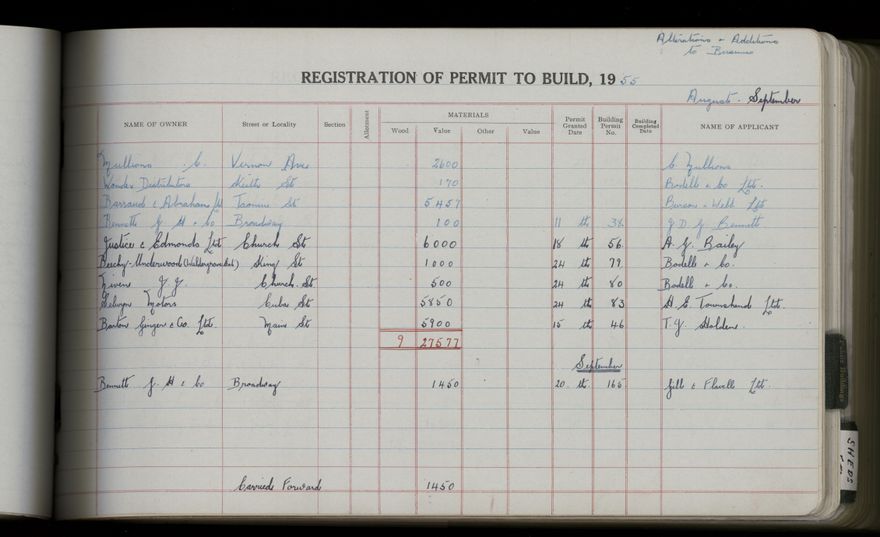 Alterations & Additions
to Business
REGISTRATION OF PERMIT TO BUILD, 1955
August. September
NAME OF OWNER Street or Locality Section Allotment MATERIALS Permit Granted Date Building Permit No. Building Completed Date NAME OF APPLICANT
Wood Value Other Value
C. Vernon Ave 2600 C.
Wonder Distributors Keith St 170 Bodell & Co Ltd.
& Abraham Ltd St 5457 & Webb Ltd
Bennett J. H & Co Broadway 100 11 th 38 J. D. J. Bennett
Justice & Edmonds Ltd Church St 6000 18 th 56 A. J. Bailey
Beechy-Underwood King St 1000 24 th 79 Bodell & Co.
Nivens J. J. Church St 500 24 th 80 Bodell & Co.
Motors Cuba St 5850 24 th 83 H. E. Townshend Ltd.
Barton Ginger & Co. Ltd. Main St 5900 15 th 46 T. J. Holden.
9 27577
September
Bennett J. H & Co Broadway 1450 20 th 165 Gill & Flavell Ltd.
Carried Forward 1450
SHEDS